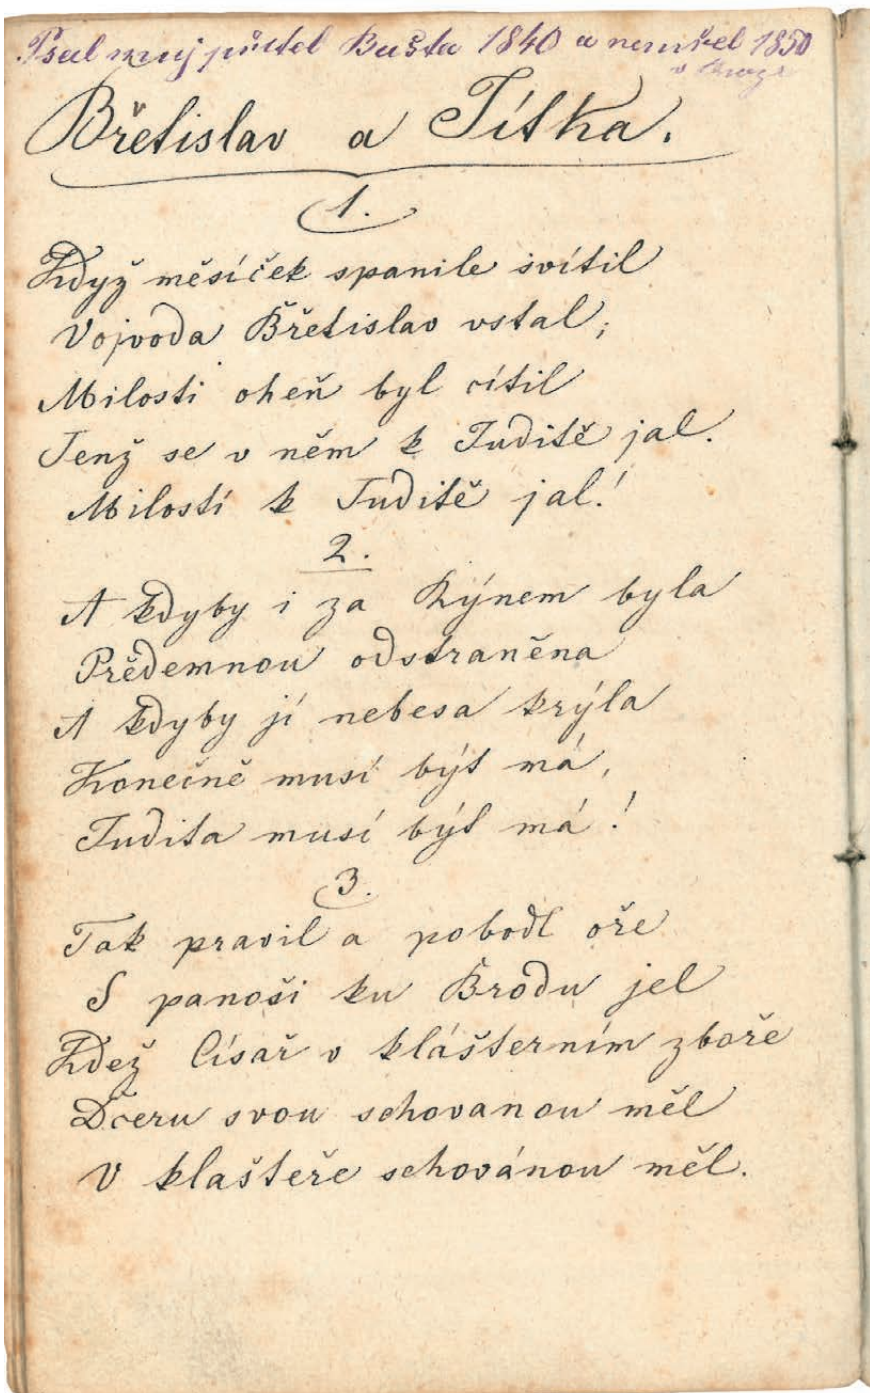 Psal můj přítel Bušta 1840 a nemřel 1850
v
Břetislav a Jitka.
1.
Když měsíček spanile svítil
Vojvoda Břetislav vstal;
Milosti oheň byl cítil
Jenž se v něm k Juditě jal.
Milostí k Juditě jal!
2.
A kdyby i za Rýnem byla
Předemnou odstraněna
A kdyby jí nebesa krýla
Konečně musí být má,
Judita musí být má!
3.
Tak pravil a pobodl oře
S panoši ku Brodu jel
Kdež Císař v klášterním zboře
Dceru svou schovanou měl
V klašteře schovánou měl.